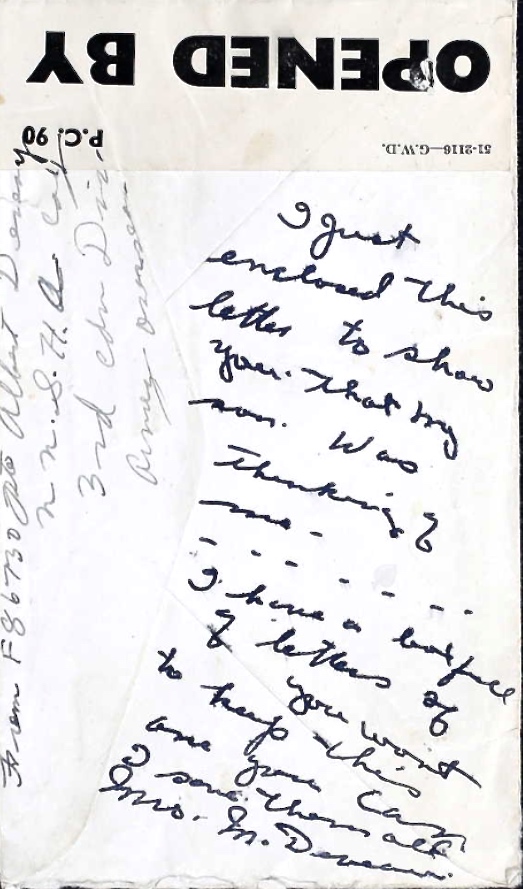 OPENED BY
P.C. 90
51-2116—G.W.D.
I Just
enclosed this
letter to show
you. that my
son. Was
Thinking of
me -
- - - - - - -
I have a boxfull
of letters if
you want
to keep this
one you can
I save them all
Mrs. M.
From F86730 Pte Albert
N.N.S.H. Coy
3rd Cdn Div.
Army Overseas